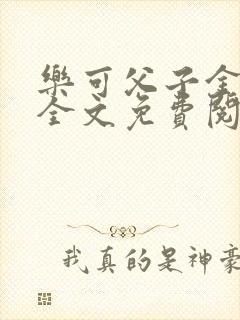 樂可父子全
全文免費閱
我真的是神豪